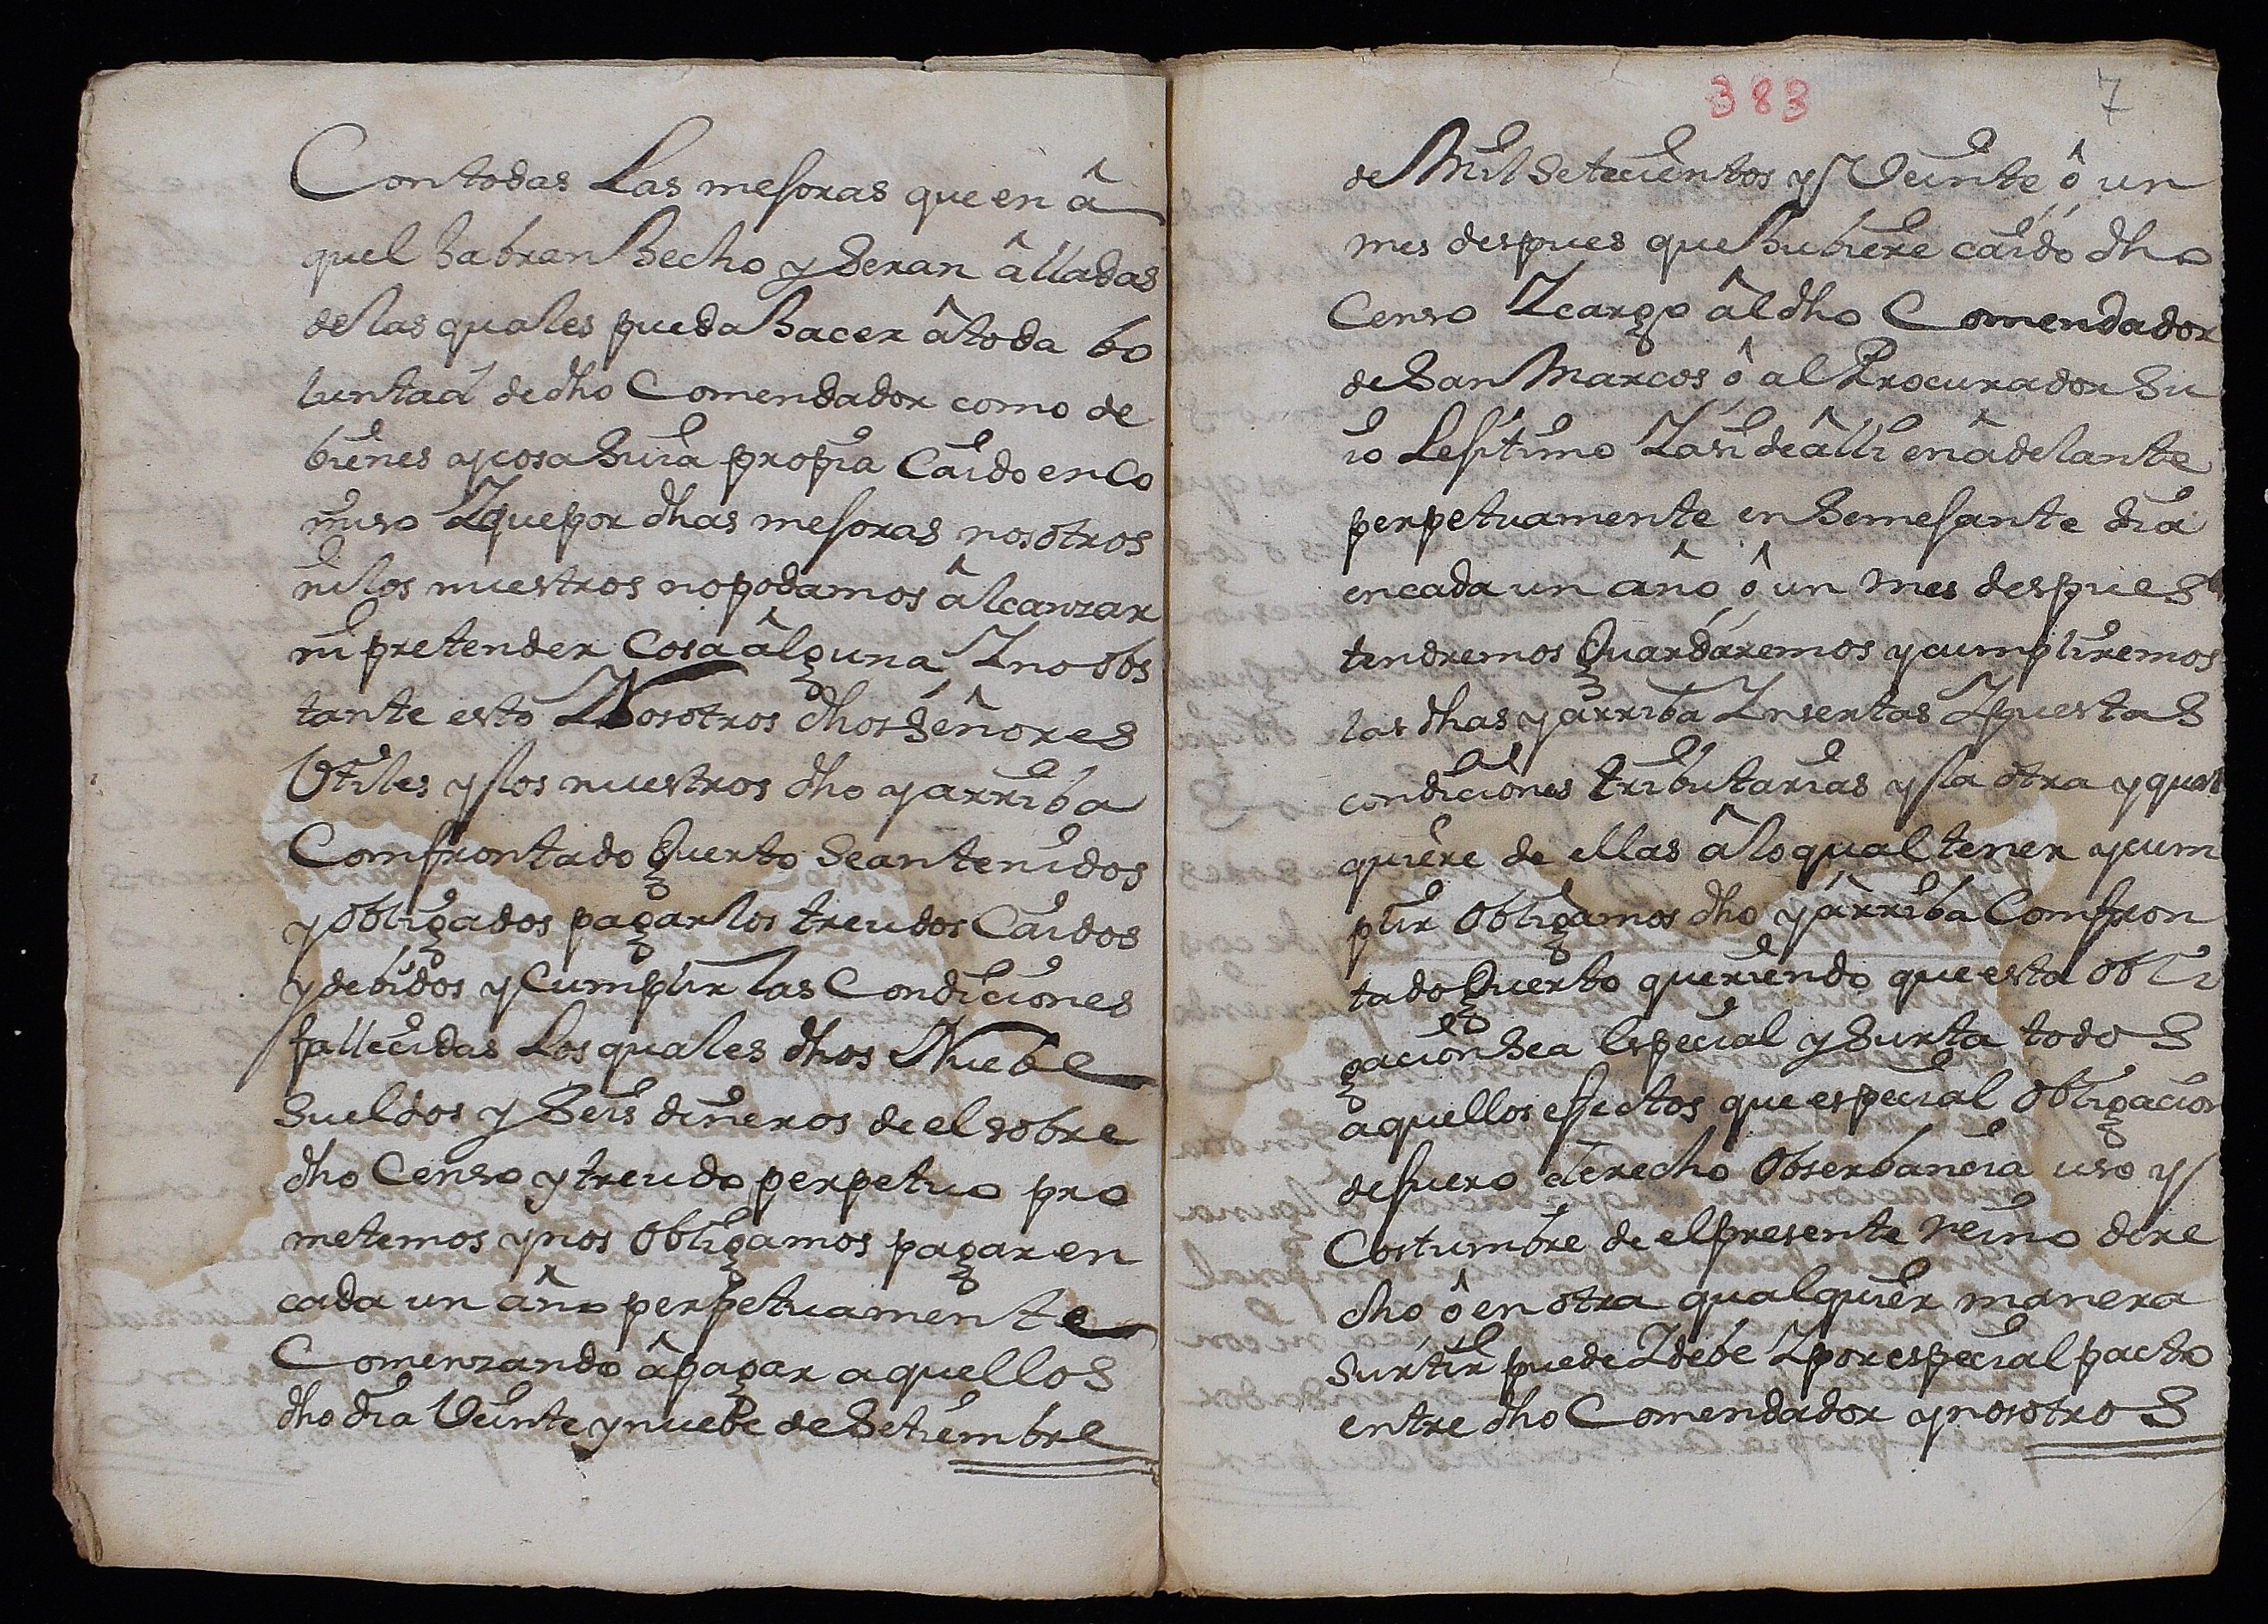 Contodas Las mesoras que en â
quel habran hecho y Seran âlladas
de las quales pueda hacer âtoda bo
luntad de dho Comendador como de
bienes y cosa Suia propia Caido en Co
miso Y que por dhas mesoras nosotros
ni los nuestros no podamos âlcanzar
ni pretender Cosa âlguna Y no obs
tante esto Nosotros dhos Señores
Utiles y los nuestros dho y arriba
Comfrontado Guerto Sean tenidos
y Obligados pagar los treudos Caidos
y debidos y Cumplir las Condiciones
fallecidas Los quales dhos Nuebe
Sueldos y Seis dineros de el sobre
dho Censo y treudo perpetuo pro
metemos y nos Obligamos pagar en
cada un año perpetuamente
Comenzando â pagar aquellos
dho dia Veinte y nuebe de Setiembre
383 7
de Mil Setecientos y Veinte ô un
mes despues que hubiere caido dho
Censo Y cargo âl dho Comendador
de San Marcos ô al Procurador Su
io Lesitimo Y asi de âlli en âdelante
perpetuamente en Semesante dia
en cada un año ô un mes despues
tendremos Guardaremos y cumpliremos
las dhas y arriba Insertas Y puestas
condiciones tributarias y la otra y qual
quiere de ellas â lo qual tener y cum
plir Obligamos dho y arriba Comfron
tado Guerto queriendo que esta Obli
gacion Sea Especial y Surta todos
aquellos efectos que especial Obligacion
de fuero derecho Obserbancia uso y
Costumbre de el presente reino dere
cho ô en otra qualquier manera
Surtir puede Y debe Y por especial pacto
entre dho Comendador y nosotros